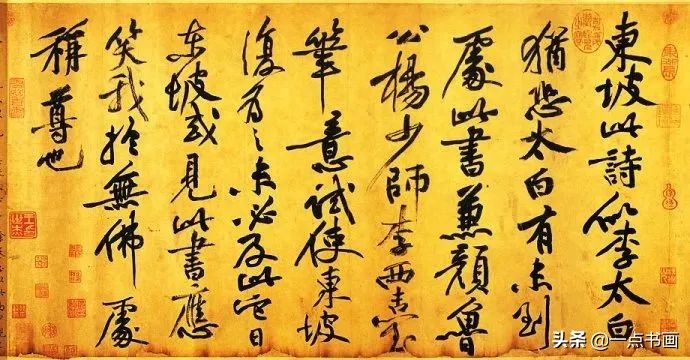 東坡此詩似李太白
猶恐太白有未到
處此書兼顏魯
公楊少師李西臺
筆意試使東坡
復為之未必及此它日
東坡或見此書應
笑我於無佛處
稱尊也
头条 @一点书画